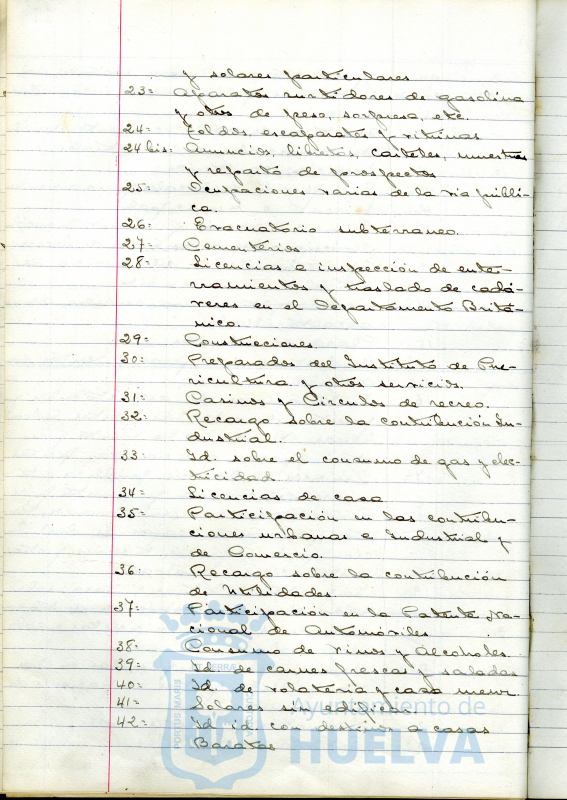 y solares particulares
23= Aparatos surtidores de gasolina
y otros de peso, sorpresa, etc.
24= Toldos, escaparates y vitrinas
24 bis= Anuncios, libretos, carteles, muestras
y reparto de prospectos
25= Ocupaciones varias de la via públi-
ca.
26= Evacuatorio subterraneo.
27= Cementerios
28= Licencias e inspección de ente-
rramientos y traslado de cadá-
veres en el Departamento Britá-
nico.
29= Construcciones.
30= Preparados del Instituto de Pue-
ricultura y otros servicios.
31= Casinos y Circulos de recreo.
32= Recargo sobre la contribución In-
dustrial.
33= Id. sobre el consumo de gas y elec-
tricidad
34= Licencias de caza
35= Participación en las contribu-
ciones urbanas e Industrial y
de Comercio.
36= Recargo sobre la contribución
de Utilidades.
37= Participación en la Patente Na-
cional de Automóviles
38= Consumo de Vinos y Alcoholes.
39= Id. de carnes frescas y saladas
40= Id. de volateria y caza menor.
41= Solares sin edificar
42= Id. id. con destinos a casas
Baratas
Ayuntamiento de
HUELVA
PORTUS MARIS